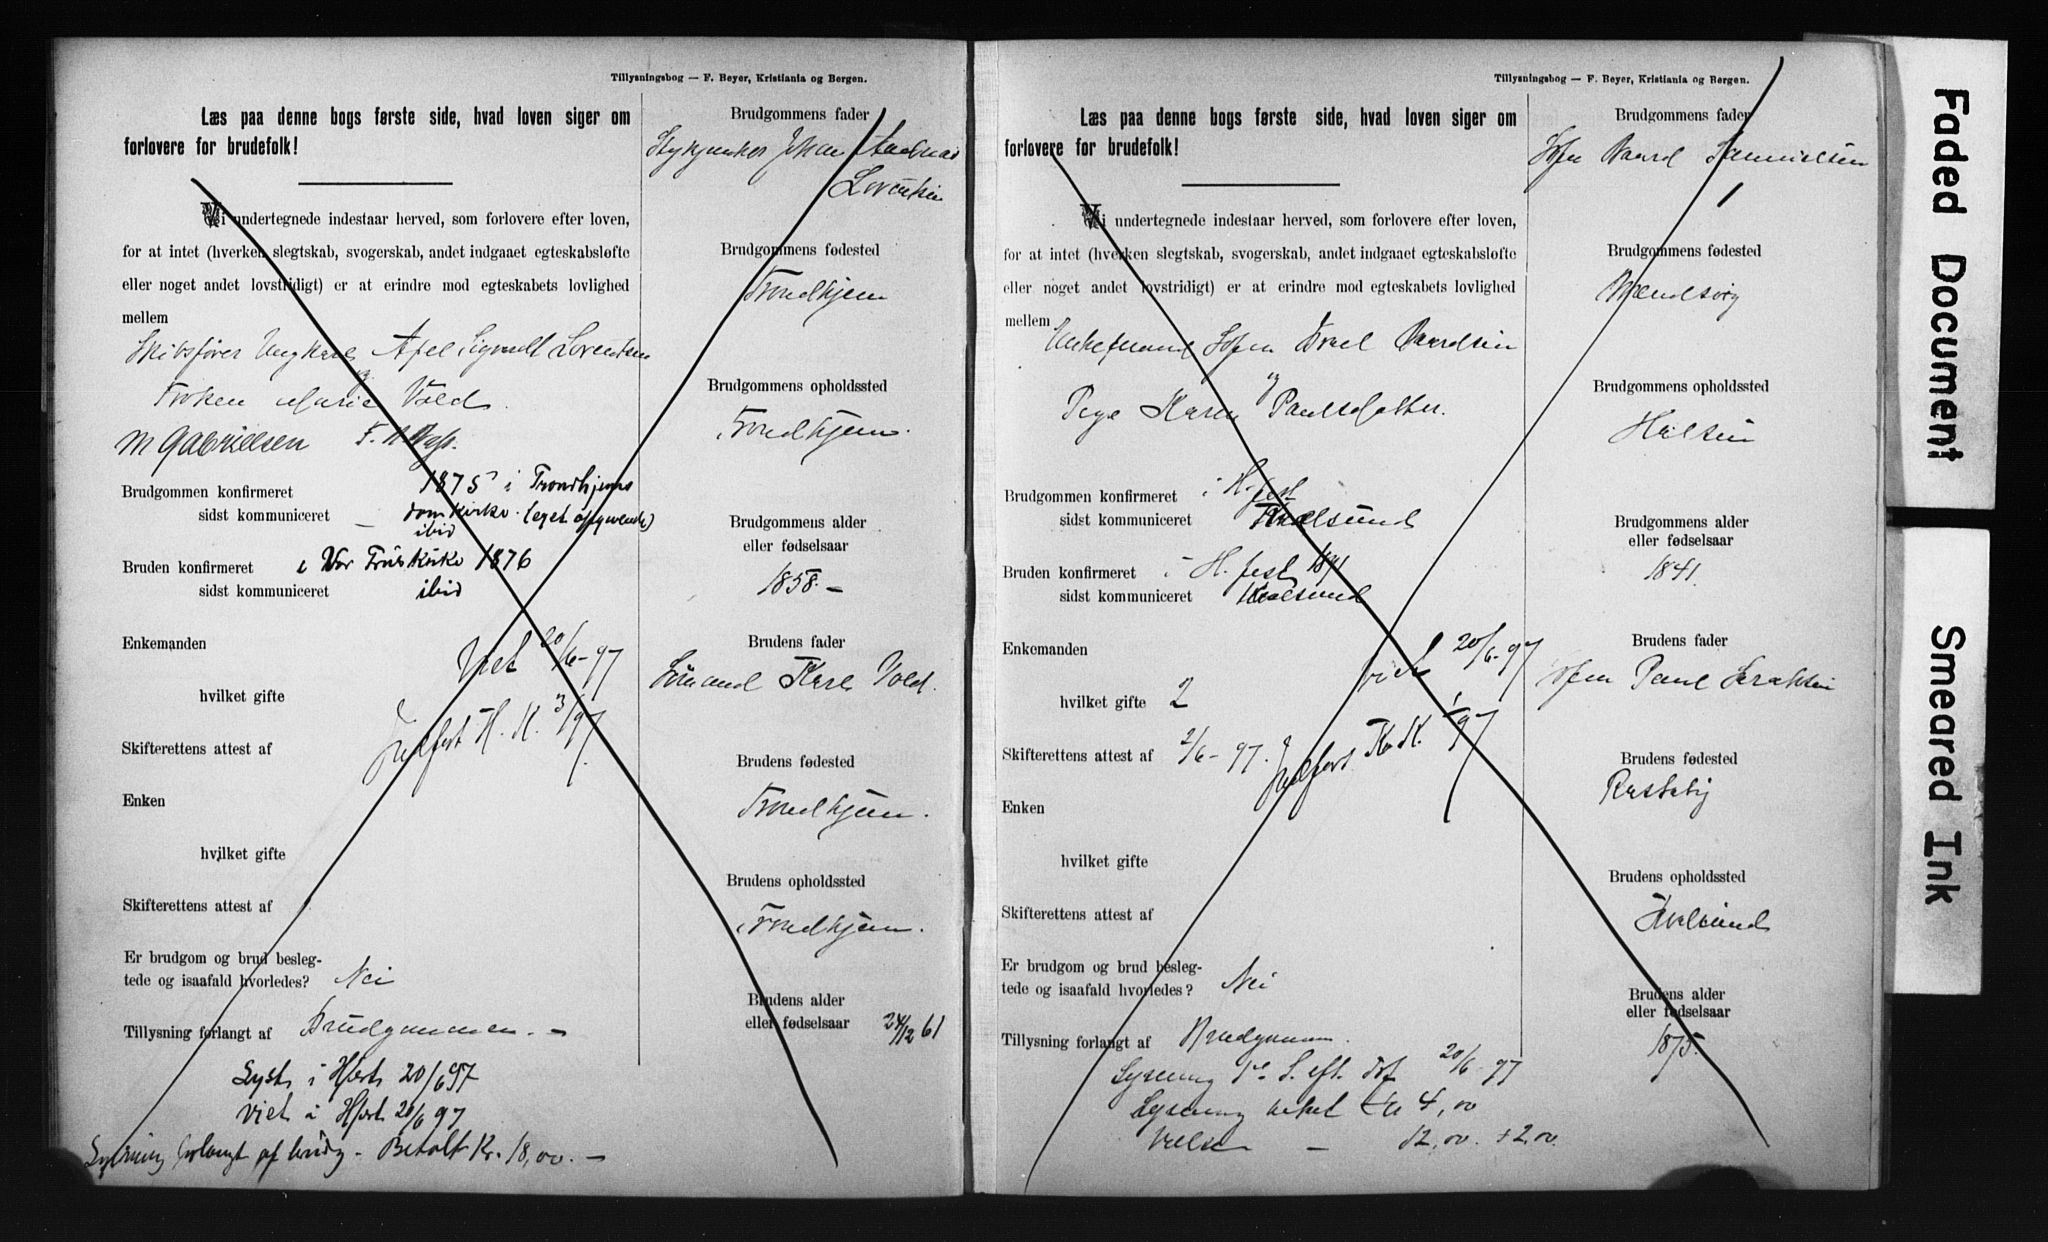 Tillysningsbog — F. Beyer, Kristiania og Bergen.
Læs paa denne bogs første side, hvad loven siger om
forlovere for brudefolk!
Vi undertegnede indestaar herved, som forlovere efter loven,
for at intet (hverken slegtskab, svogerskab, andet indgaaet egteskabsløfte
eller noget andet lovstridigt) er at erindre mod egteskabets lovlighed
mellem
Skibsfører Ungkarl Axel Sigvardt Lorentsen
og
Frøken Marie Vold
M Gabrielsen
Brudgommen konfirmeret 1875 i Trondhjems
sidst kommuniceret domkirke (eget opgivende)
ibid
Bruden konfirmeret i Vor Frue Kirke 1876
sidst kommuniceret ibid
Enkemanden
Viet 20/6-97
hvilket gifte
Indført H. K. 3/97.
Skifterettens attest af
Enken
hvilket gifte
Skifterettens attest af
Er brudgom og brud besleg-
tede og isaafald hvorledes? Nei
Tillysning forlangt af Brudgommen. —
Lyst i Hfest 20/6 97
viet i Hfest 20/6 97
Lysning forlangt af brudg. - Betalt Kr. 18,00. —
Brudgommens fader
Johan
Lorentsen
Brudgommens fødested
Trondhjem
Brudgommens opholdssted
Trondhjem.
Brudgommens alder
eller fødselsaar
1858. —
Brudens fader
Sømand Karl Vold.
Brudens fødested
Trondhjem.
Brudens opholdssted
Trondhjem.
Brudens alder
eller fødselsaar 24/12 61
Tillysningsbog — F. Beyer, Kristiania og Bergen.
Læs paa denne bogs første side, hvad loven siger om
forlovere for brudefolk!
Vi undertegnede indestaar herved, som forlovere efter loven,
for at intet (hverken slegtskab, svogerskab, andet indgaaet egteskabsløfte
eller noget andet lovstridigt) er at erindre mod egteskabets lovlighed
mellem
Enkemand Søfin Baardsen
og
Pige Karen Paulsdatter.
Brudgommen konfirmeret i H-fest
sidst kommuniceret Kvalsund
Bruden konfirmeret i H. fest 1891
sidst kommuniceret Kvalsund
Enkemanden
viet 20/6-97
hvilket gifte 2
Indført K. K. 1/97
Skifterettens attest af 2/6-97.
Enken
hvilket gifte
Skifterettens attest af
Er brudgom og brud besleg-
tede og isaafald hvorledes? Nei
Tillysning forlangt af Brudgommen.
Lysning 1ste S. eft. Trf 20/6-97
Lysning betalt Kr 4,00
Vielse — 12,00 + 2,00
Brudgommens fader
Søfin Baard Samuelsen
Brudgommens fødested
Brudgommens opholdssted
Brudgommens alder
eller fødselsaar
1841.
Brudens fader
Søfin Paul
Brudens fødested
Brudens opholdssted
Kvalsund
Brudens alder
eller fødselsaar
1875.
Faded Document
Smeared Ink